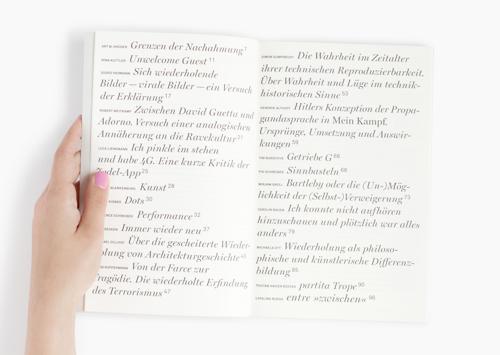 Grenzen der Nachahmung 7
Unwelcome Guest 11
Sich wiederholende
Bilder – virale Bilder – ein Versuch
der Erklärung 17
Zwischen David Guetta und
Adorno. Versuch einer analogischen
Annäherung an die Ravekultur 21
Ich pinkle im stehen
und habe 4G. Eine kurze Kritik der
-App 25
Kunst 28
Dots 30
Performance 32
Immer wieder neu 37
Über die gescheiterte Wieder-
holung von Architekturgeschichte
Von der Farce zur
Tragödie. Die wiederholte Erfindung
des Terrorismus 47
Die Wahrheit im Zeitalter
ihrer technischen Reproduzierbarkeit.
Über Wahrheit und Lüge im technik-
historischen Sinne 53
Hitlers Konzeption der Propa-
gandasprache in Mein Kampf.
Ursprünge, Umsetzung und Auswir-
kungen 59
Getriebe G 66
Sinnbasteln 68
Bartleby oder die (Un-)Mög-
lichkeit der (Selbst-)Verweigerung 75
Ich konnte nicht aufhören
hinzuschauen und plötzlich war alles
anders 79
Wiederholung als philoso-
phische und künstlerische Differenz-
bildung 85
partita Trope 95
entre »zwischen« 96